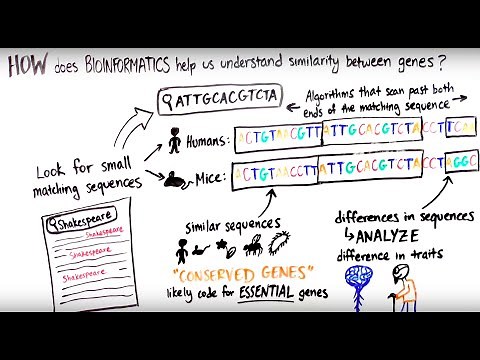 HOW does BIOINFORMATICS help us understand similarity between genes?
ATTGCACGTCTA
Algorithms that scan past both
ends of the matching sequence
Look for small
matching sequences
Humans: ACTGTAACGTT ATTGCACGTCTA CCT
Mice: ACTGTAACCTT ATTGCACGTCTA CCT AGGC
Shakespeare
Shakespeare
Shakespeare
Shakespeare
similar sequences
"CONSERVED GENES"
likely code for ESSENTIAL genes
differences in sequences
ANALYZE
difference in traits